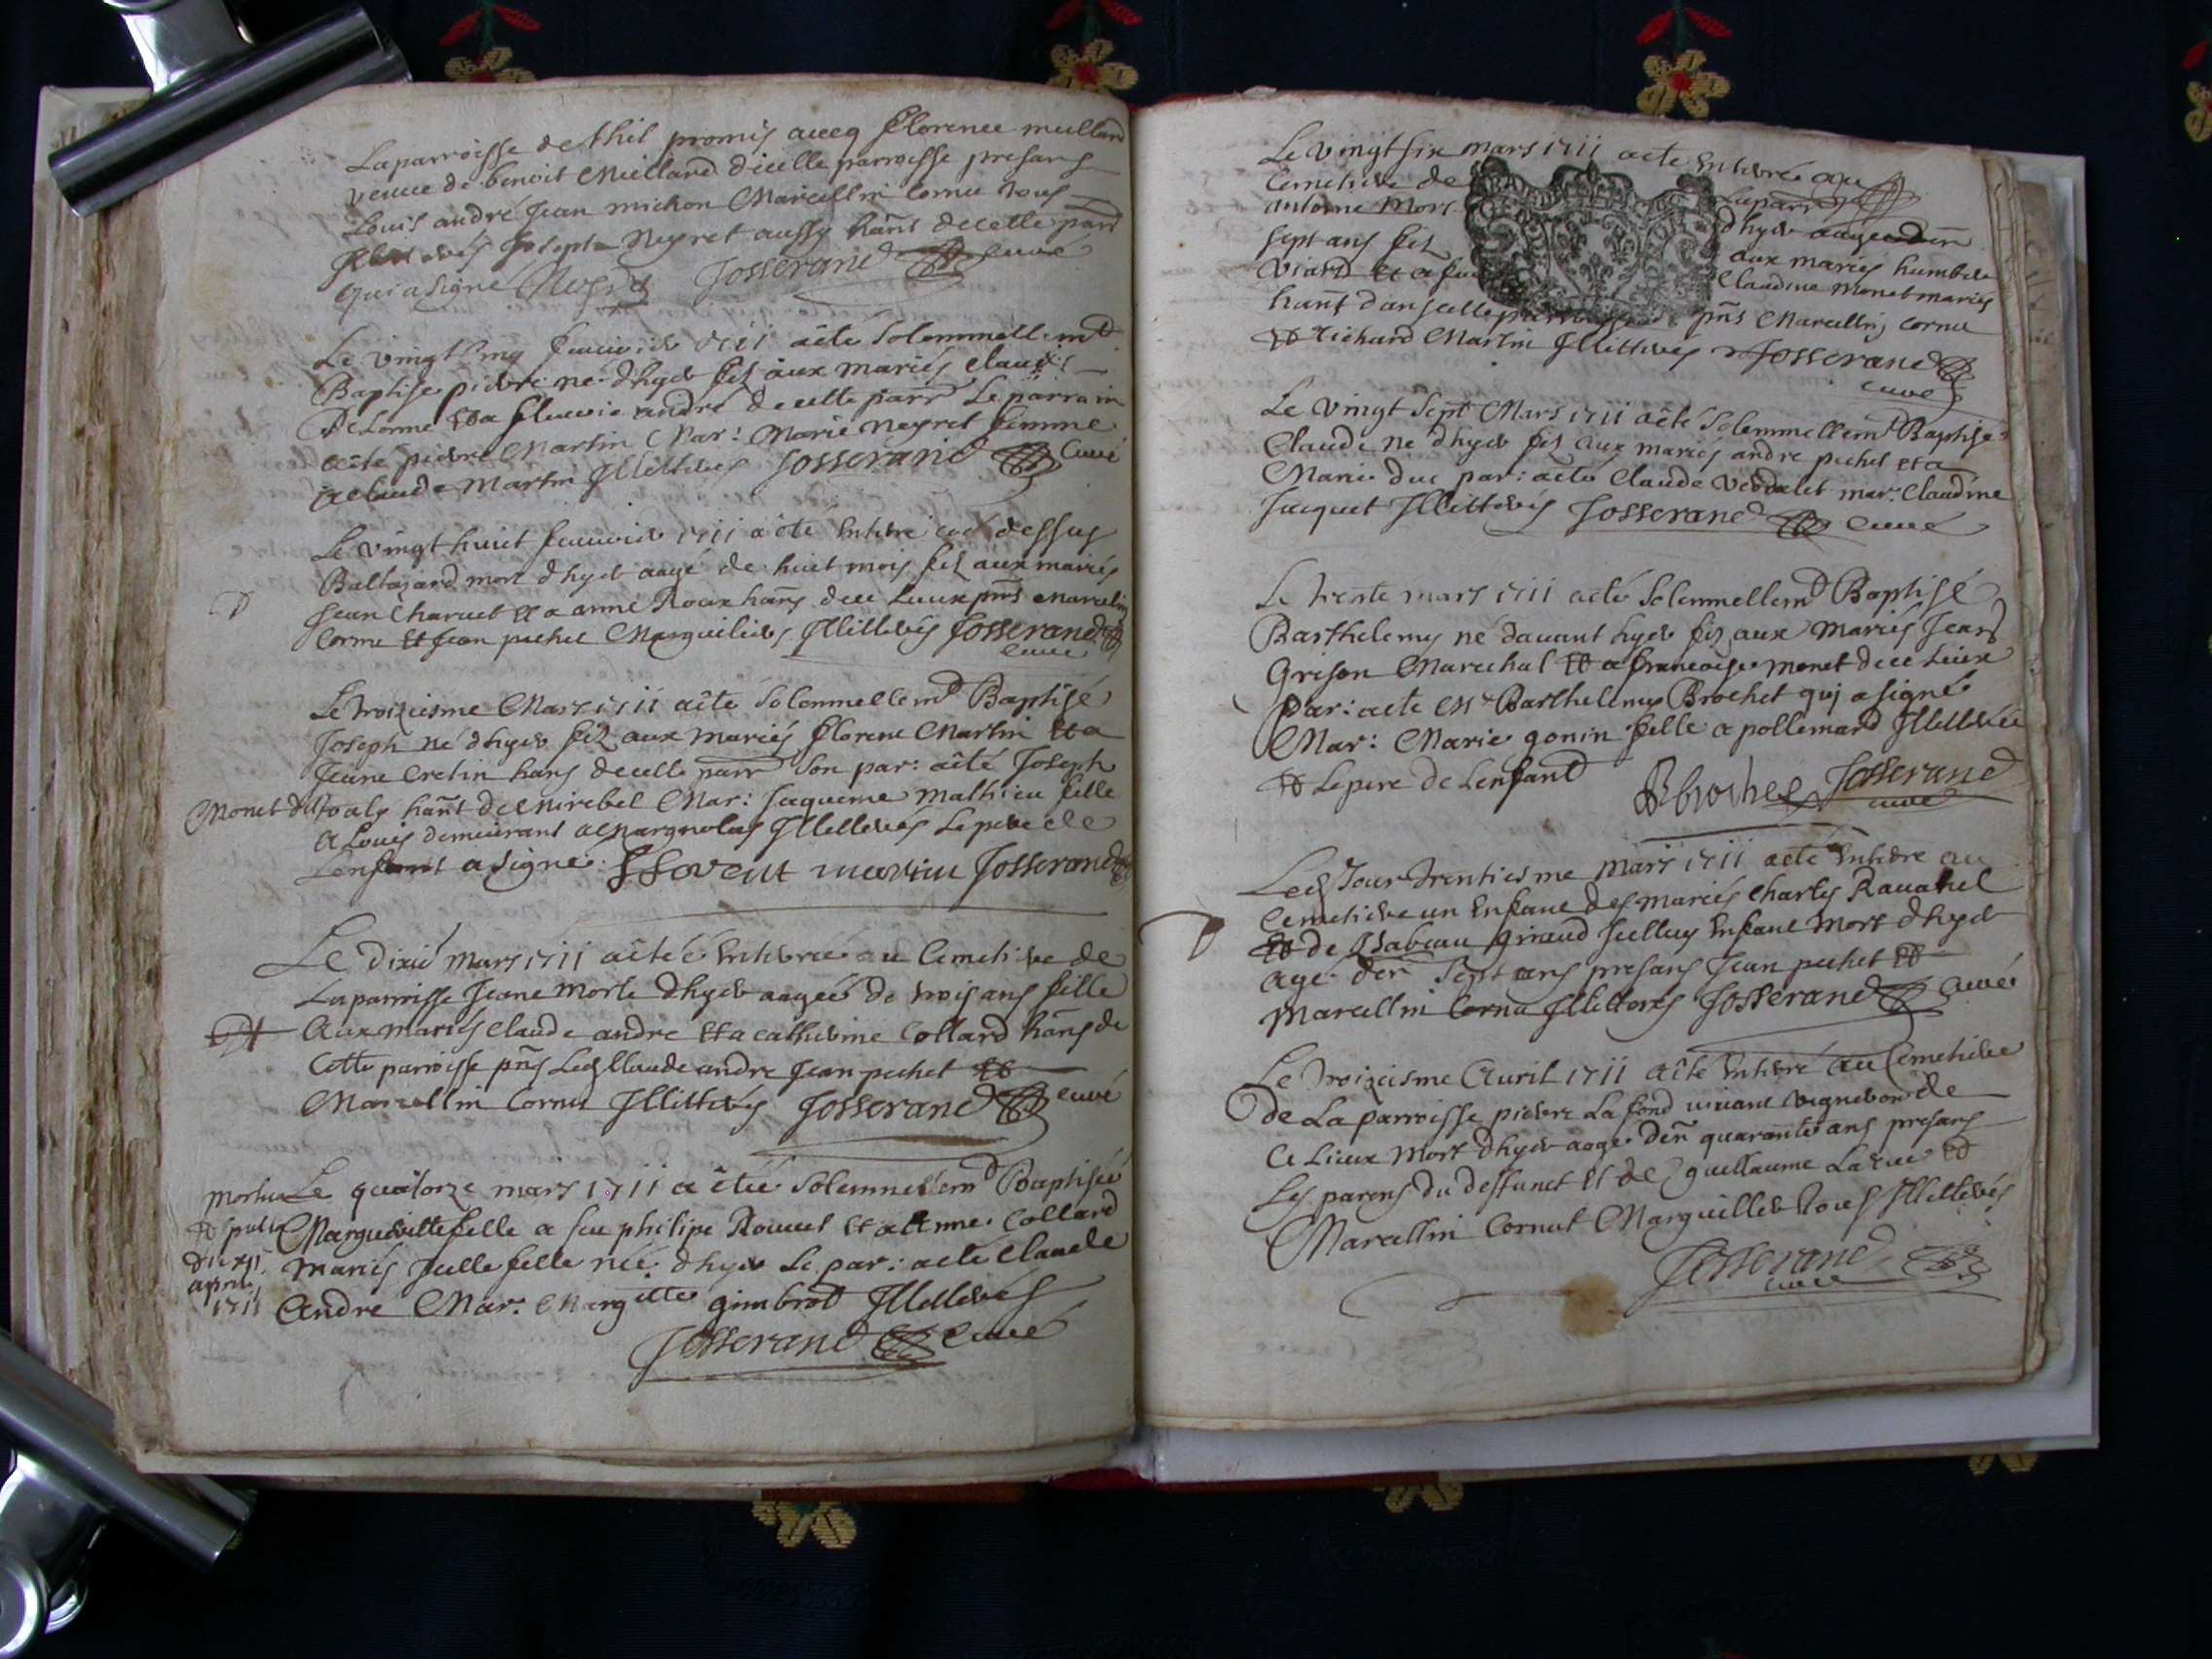 La parroisse de thil promis avecq florence meillard
veuve de benoit Meillard d'icelle parroisse presans
Louis andré Jean michon Marcellin Cornu tous
Illettrés Joseph Neyret aussy hañt de cette parr
qui a signé Neyret Josserand curé
Le vingt cinq feuvrier 1711 a êté solemnellemt
Baptisé pierre né d'hyer fils aux mariés claude
Delorme et a fleurie andré de cette parr Le parrain
a êté pierre Martin Mar: Marie neyret femme
a claude Martin Illettrés Josserand Curé
Le vingt huict feuvrier 1711 a êté enterré
Baltazard mort d'hyer aagé de huict mois fils aux mariés
Jean Charvet et a anne Roux hañs de ce Lieux pñs Marcelin
Cornu et Jean pechet Marguiliers Illittrés Josserand
curé
Le troiziesme Mars 1711 a êté solemnellemt Baptisé
Joseph né d'hyer fils aux mariés florent Martin et a
Jeane Cretin hans de cette parr son par: a êté Joseph
Monet hañt de Mirebel Mar: Jaqueme Mathieu fille
a Louis demeurant a Margnolas Illettrés Le pere de
L'enfant a signé: fflorent martin Josserand
Le dixié mars 1711 a êtéé enterréé au Cemetiere de
La parroisse Jeane morte d'hyer aagéé de trois ans fille
Aux mariés claude andre et a catherine Collard hans de
cette parroisse pñs Led Claude andre Jean pechet et
Marcellin Cornu Illittrés Josserand curé
Le quatorze mars 1711 a êtéé solemnellemt Baptiséé
Margueritte fille a feu philipe Rouvet et a anne Collard
mariés Icelle fille néé d'hyer Le par: a êté claude
andre Mar: Margitte gimbrod Illettrés
Josserand Curé
mortua
et sepulta
die xii
aprilis
1711
Le vingt six mars 1711 a êté enterré au
Cemetiere de La parr
antoine Mort d'hyer aagé d'en
sept ans fils aux mariés humbert
viard et a feue Claudine monet mariés
hañt dans cette parroisse pñs Marcellin Cornu
et Richard Martin Illittrés Josserand
curé
Le vingt sept Mars 1711 a êté solemnellemt Baptisé
Claude né d'hyer fils aux mariés andre pechet et a
Marie duc par: a êté Claude verdelet mar: Claudine
Jacquet Illittrés Josserand curé
Le trente mars 1711 a êté solemnellemt Baptisé
Barthelemy né d'auant hyer fils aux mariés Jean
Grison Marechal et a francoise monet de ce Lieux
par: a êté Mr Barthelemy Brochet qui a signé
Mar: Marie gonin fille a pollemard Illettrée
et Le pere de L'enfant BBrochet Josserand
curé
Led Jour trentiesme mars 1711 a êté enterré au
Cemetiere un enfant des mariés charles Ravatel
et de Isabeau giraud Icelluy enfant Mort d'hyer
agé d'en sept ans presans Jean pechet et
Marcellin Cornu Illittrés Josserand curé
Le troizeisme Auril 1711 a êté enterré au Cemetiere
de La parroisse pierre La fond viuant vigneron de
ce Lieux Mort d'hyer aagé d'en quarante ans presans
Les parens du deffunct et de guillaume Larue et
Marcellin Cornut Marguillier tous Illettrés
Josserand
curé